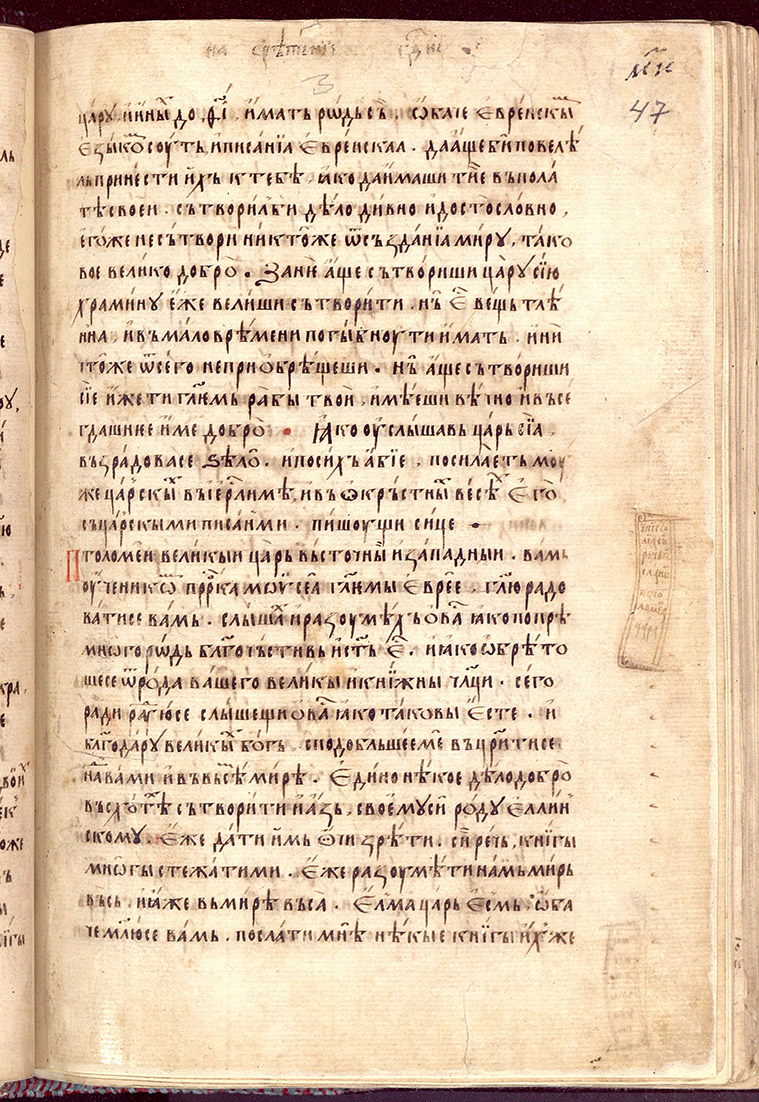 на срѣтенїе гдⷭ҇нѥ
47
царꙋ. и҆ины҆ до, р҃і, и҆мать рѡдьсь. ѡ҆баче е҆вре́искыⷨ
е҆зы́кѡⷨ соуть, и҆писа́нїꙗ е҆вре́искаа. да а҆ще би повелѣ́
ль принести и҆́хь к тебѣ̀, ꙗ҆ко да и҆́маши ти́е въ пола́
тѣ своеи. сътвори́ль би дѣ́ло ди́вно и҆достосло́вно,
е҆го́же несътвори никто́же ѿ създа́нїа ми́рꙋ, тако
вое вели́ко добро̀. Зане́ а҆́ще сътво́риши ца́рꙋ сїю
хра́минꙋ е҆́же вели́ши сътвори́ти. нъ̀ е҆ⷭ҇ ве́щь тлѣ́
нна, и҆въма́ло врѣ́мени поги́бноути и҆́мать. и҆ни
что́же ѿ се́го не прио҆брѣ́щеши. нъ̀ а҆́ще сътво́риши
сїе и҆́же ти гл҃ѥмь рабы̀ твои̂, и҆мѣ́еши вѣ́чно и҆въсе
гда́шнѥе и҆́ме добро̀. Ꙗ҆ко оу҆слы́шавь ца́рь сїа̀.
възра́довасе ѕѣлѡ̀. и҆посиⷯ҇ь а҆́бїе, посила́еть моу
же ца́рскыⷯ въ і҆ерⷭ҇ли́мѣ, и҆въ ѻ҆кръстныⷯ ве́сеⷯ е҆го̀
съ ца́рскыми писа́нми. пи́шоущи си́це
Птоломе́и вели́кыи ца́рь въсто́чныи и҆за́падныи. вамь
оу҆ченикѡⷨ прⷪ҇рка мѡѵ̈се́а гл҃ѥмы е҆вре́е, гл҃ю ра́до
ва́тисе вамь. слы́шаⷯ и҆разоумѣ́хь о҆ва́ⷭ҇ ꙗ҆ко попрѣ́
мно́го рѡдь бл҃гоче́стивь и҆сть҆ⷭ҇ е҆ⷭ҇. и҆ꙗ҆ко ѡ҆брѣ́то
шесе ѿ рѡ́да ва́шего вели́кы и҆кни́жны ча́ⷭ҇щи. се́го
ра́ди ра́ⷣꙋюсе слы́шещи о҆ва́ⷭ҇ ꙗ҆ко та́ковы е҆́сте. и҆
бл҃года́рꙋ вели́кыⷨ бо́гѡⷨ. сподо́бльшее ме въцр҃и́тисе
на́ⷣ вами и҆въ въсе́мь ми́рѣ. Е҆ди́но нѣ́кое дѣ́ло добро̀
въсхо́тѣⷯ сътвори́ти и҆а҆́зь, своемꙋ си̂ ро́дꙋ е҆́ллин
скомꙋ. е҆́же да́ти и҆́мь о҆́чи зрѣ́ти. си́ⷬ҇ рѣчь, кни́гы
мнѡ́гы стежа́ти ми. е҆́же разоумѣ́ти на́мь мирь
въсь, и҆ꙗ҆́же въ ми́рѣ въса̀. Е҆́лма ца́рь е҆́смь, ѡ҆ба
че мл҃ю́се вамь. посла́ти мнѣ̀ нѣ́кые кни́гы и҆́хже